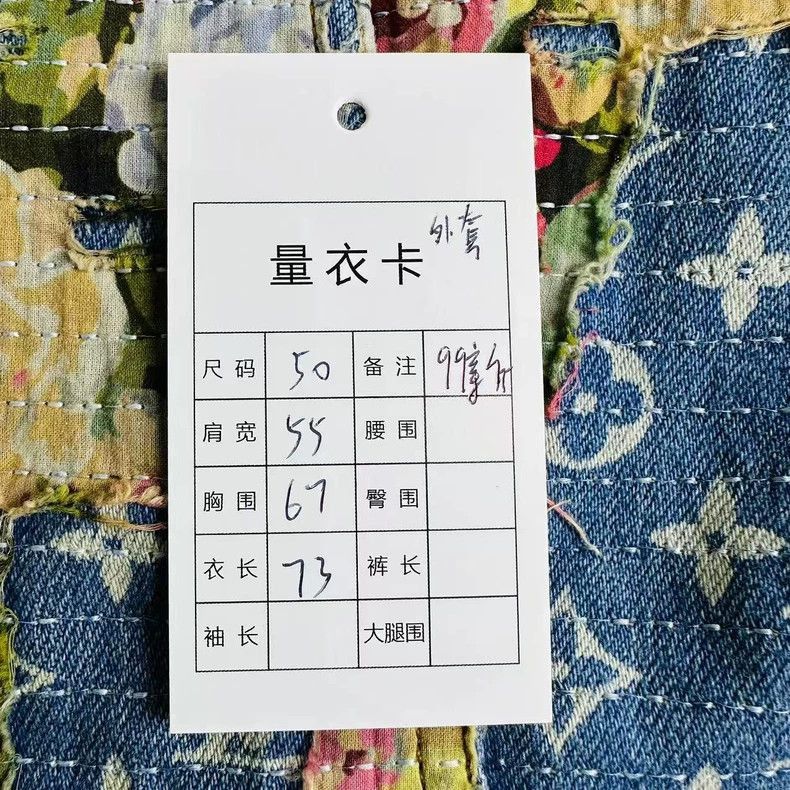 量衣卡 外套
尺码 50 备注 99新
肩宽 55 腰围
胸围 67 臀围
衣长 73 裤长
袖长 大腿围
LV